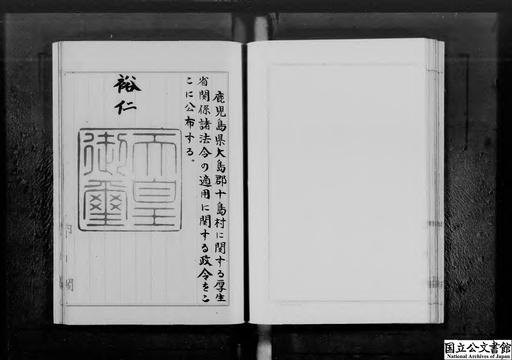 鹿児島県大島郡十島村に関する厚生
省関係諸法令の適用に関する政令をこ
こに公布する。
裕仁
天皇
御璽
内閣
国立公文書館
National Archives of Japan